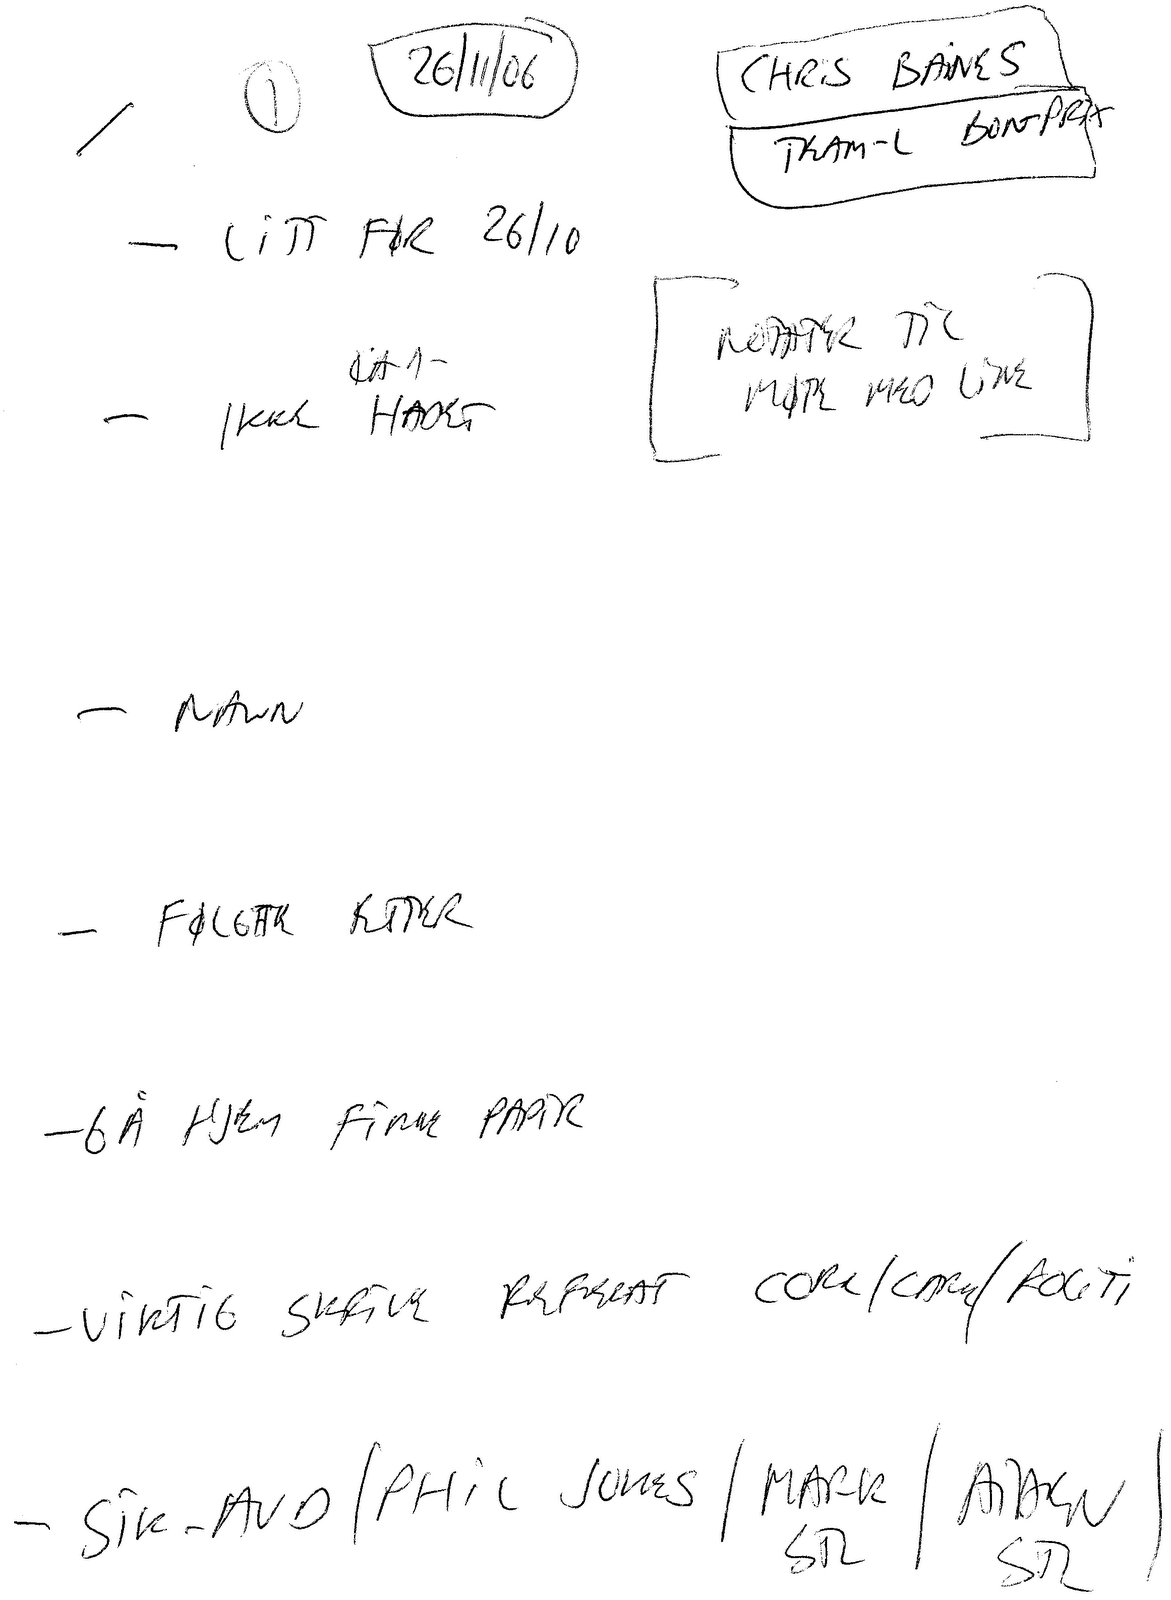 ① 26/11/06
CHRIS BAINES
TRAM-L BON-PRIX
- LITT FØR 26/10
[NOTATER TIL
MØTE MED LINE]
- IKKE HADET
- NAVN
- FØLGTE ETTER
- GÅ HJEM FINNE PAPIR
- VIKTIG SKRIVE REFERAT CORE/CARE/
- SIK-AVD/PHIL JONES/MARK/AIDAEN/
STR STR